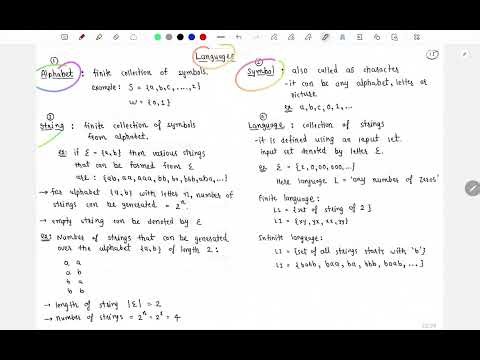 Languages
15
①
Alphabet : finite collection of symbols.
example: S = {a,b,c,...,z}
W = {0,1}
②
Symbol : also called as character
- it can be any alphabet, letter or
picture
ex a,b,c,0,1,...
③
String : finite collection of symbols
from alphabet.
ex: if Σ = {a,b} then various strings
that can be formed from Σ
are : {ab, aa, aaa, bb, ba, bbb, aba,...}
→ for alphabet {a,b} with letter n, number of
strings can be generated = 2ⁿ.
→ empty string can be denoted by ε
ex: Number of strings that can be generated
over the alphabet {a,b} of length 2 :
a a
a b
b a
b b
→ length of string |Σ| = 2
→ number of strings = 2ⁿ = 2² = 4
Language : collection of strings
- it is defined using an input set.
input set denoted by letter Σ.
Here language L = 'any number of zeros'
finite language :
L1 = {set of string of 2}
L1 = {xy, yx, xx, yy}
Infinite language :
L1 = {set of all strings starts with 'b'}